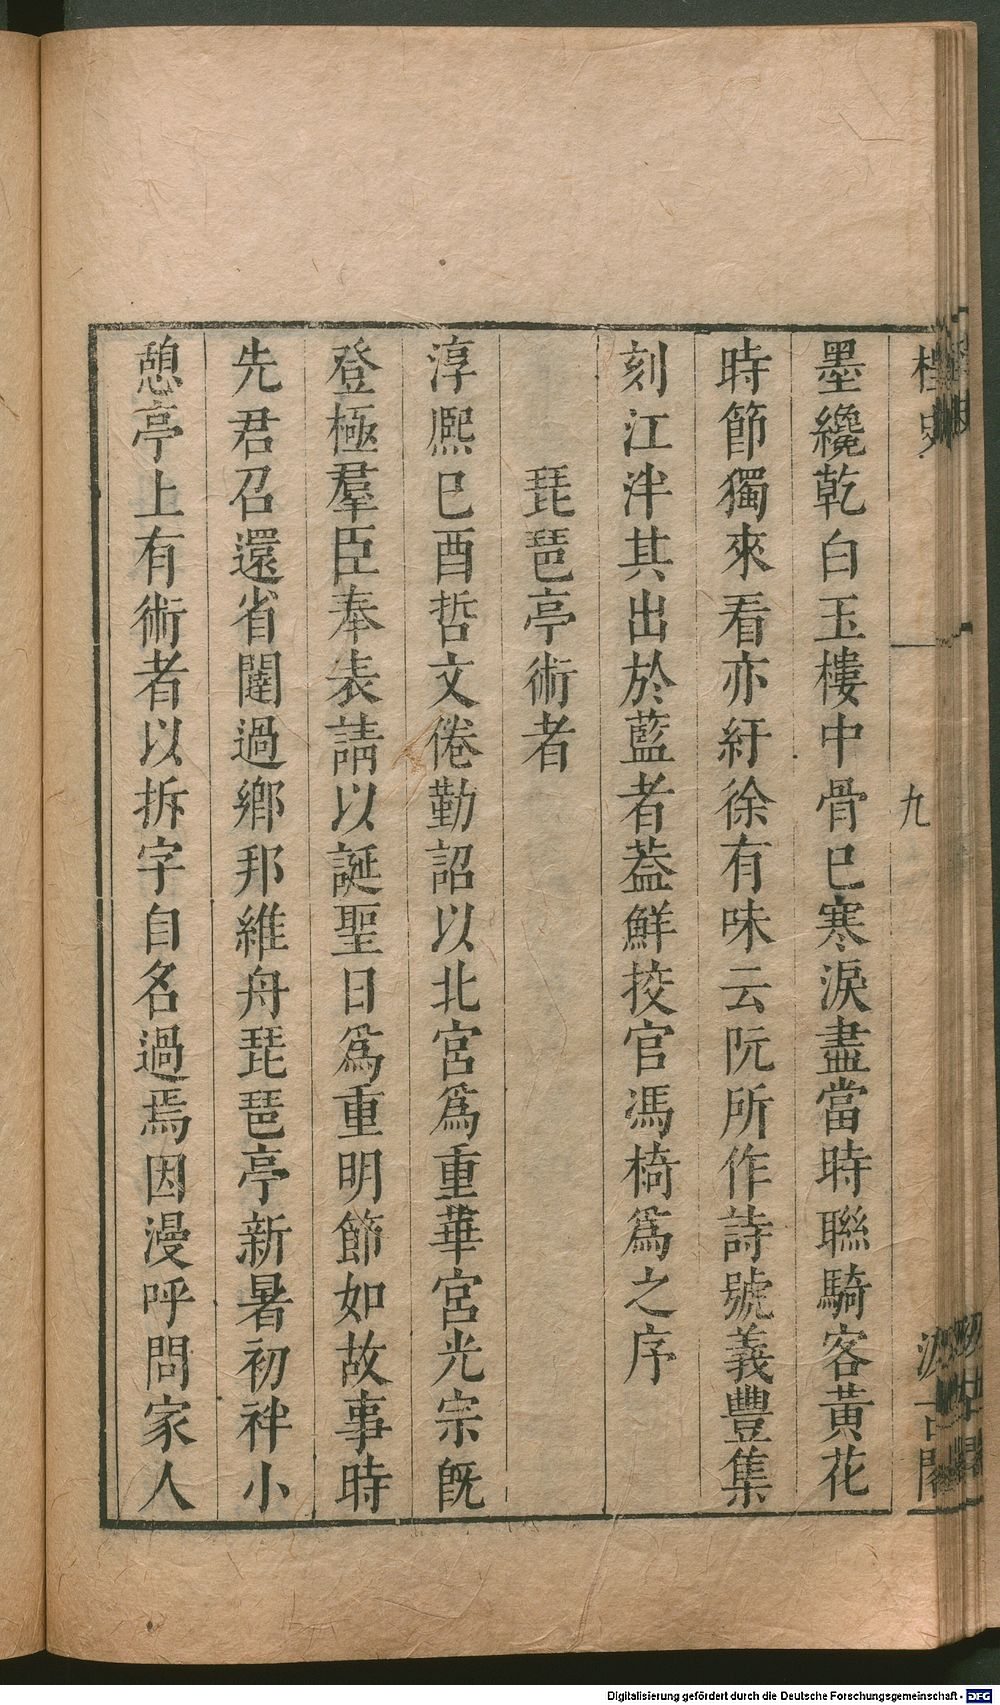 桯史
九
汲古閣
墨纔乾白玉樓中骨已寒淚盡當時聯騎客黃花
時節獨來看亦紆徐有味云阮所作詩號義豐集
刻江泮其出於藍者葢鮮挍官馮椅爲之序
琵琶亭術者
淳熈已酉哲文倦勤詔以北宮爲重華宮光宗旣
登極羣臣奉表請以誕聖日爲重明節如故事時
先君召還省闥過鄉邦維舟琵琶亭新暑初袢小
憩亭上有術者以拆字自名過焉因漫呼問家人
Digitalisierung gefördert durch die Deutsche Forschungsgemeinschaft - DFG